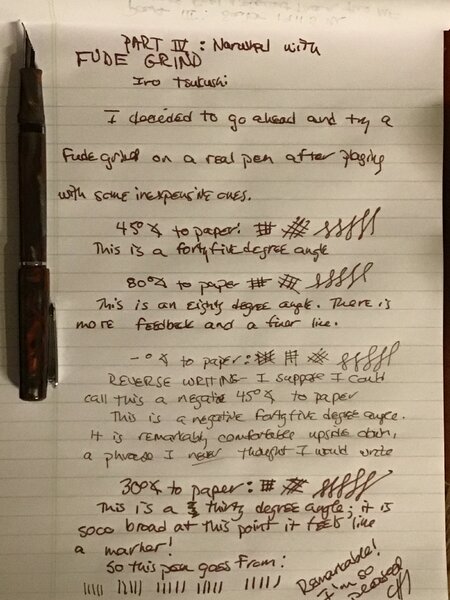 PART IV: Narwhal with
FUDE GRIND
Iro Tsukushi
I deceded to go ahead and try a
Fude grind on a real pen after playing
with some inexpensive ones.
45°∡ to paper:
This is a forty five degree angle
80°∡ to paper
This is an eighty degree angle. There is
more feedback and a finer line.
-°∡ to paper:
REVERSE WRITING I suppose I could
call this a negative 45°∡ to paper
This is a negative forty five degree angle.
it is remarkably comfortable upside down,
a phrase I never thought I would write
30°∡ to paper:
This is a thirty degree angle; it is
sooo broad at this point it feels like
a marker!
So this pen goes from:
Remarkable!
I'm so
pleased